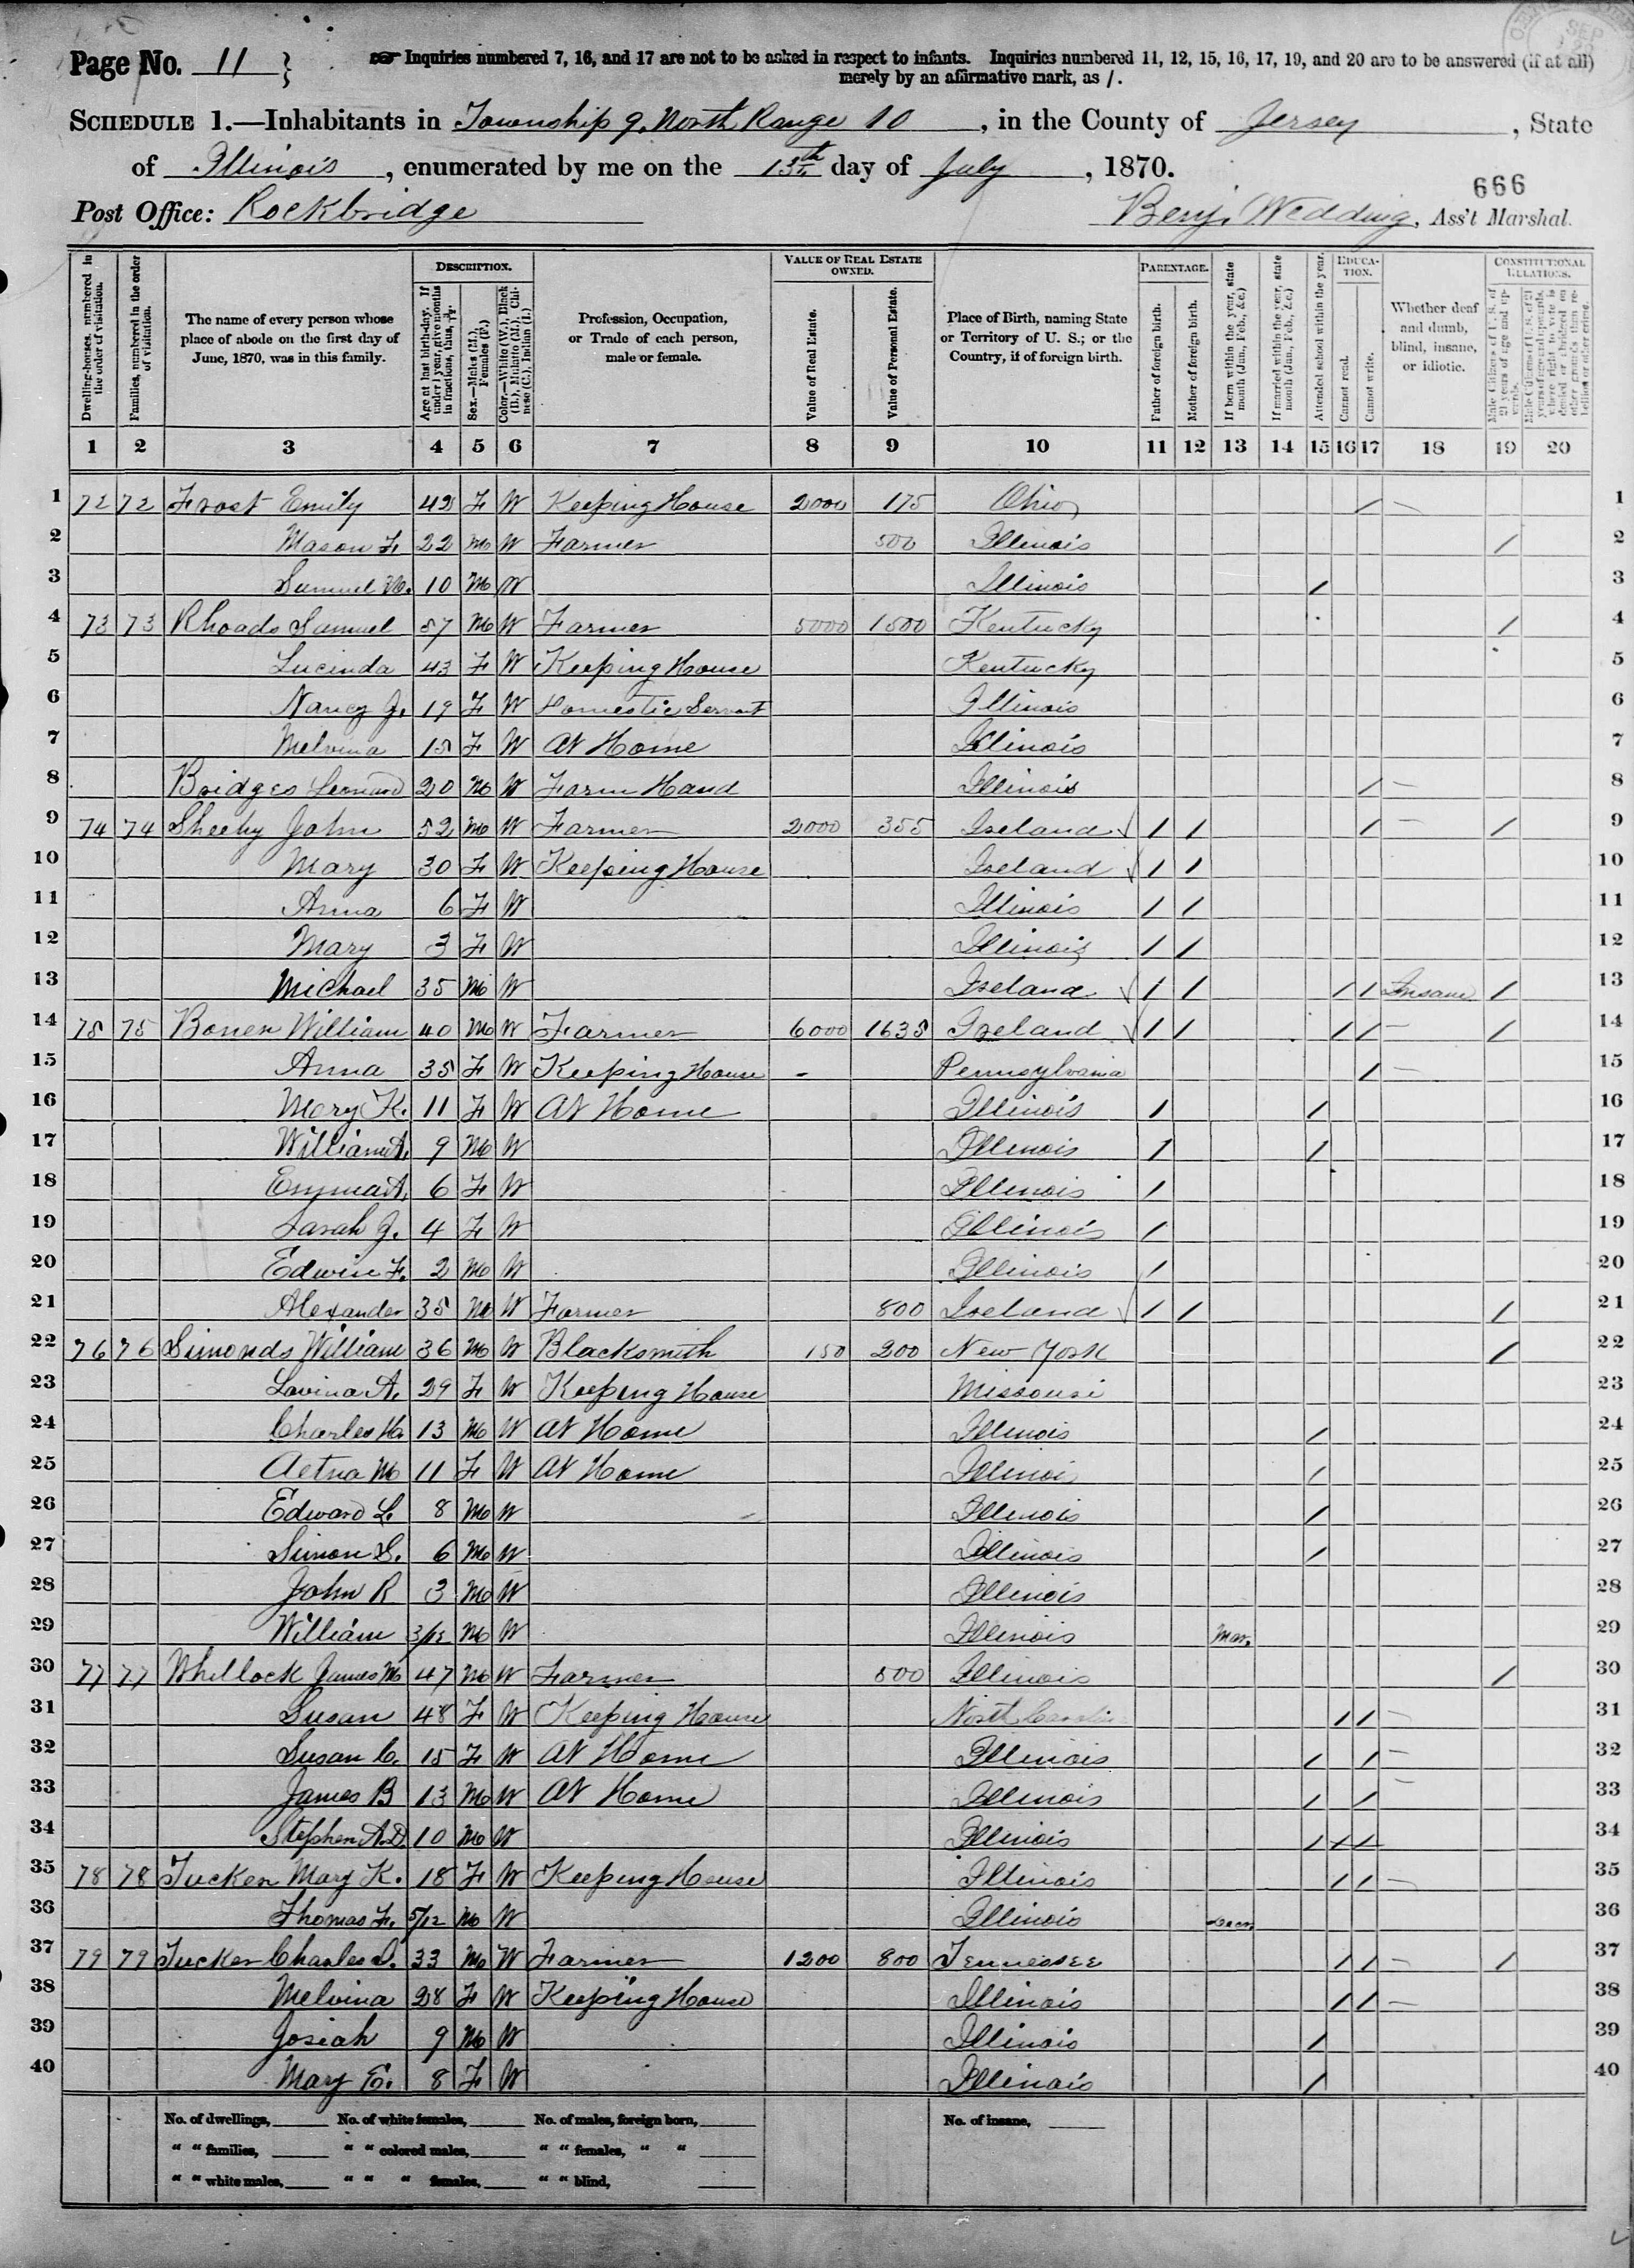 Page No. 11 } ☞ Inquiries numbered 7, 16, and 17 are not to be asked in respect to infants. Inquiries numbered 11, 12, 15, 16, 17, 19, and 20 are to be answered (if at all)
merely by an affirmative mark, as /.
SCHEDULE 1.—Inhabitants in Township 9. North Range 10, in the County of Jersey, State
of Illinois, enumerated by me on the 13th day of July, 1870.
666
Post Office: Rockbridge Benj. Wedding, Ass't Marshal.
Dwelling-houses, numbered in the order of visitation.
Families, numbered in the order of visitation.
The name of every person whose place of abode on the first day of June, 1870, was in this family.
DESCRIPTION.
Age at last birth-day. If under 1 year, give months in fractions, thus, 3/12.
Sex.—Males (M.), Females (F.)
Color.—White (W.), Black (B.), Mulatto (M.), Chinese (C.), Indian (I.)
Profession, Occupation, or Trade of each person, male or female.
VALUE OF REAL ESTATE OWNED.
Value of Real Estate.
Value of Personal Estate.
Place of Birth, naming State or Territory of U. S.; or the Country, if of foreign birth.
PARENTAGE.
Father of foreign birth.
Mother of foreign birth.
If born within the year, state month (Jan., Feb., &c.)
If married within the year, state month (Jan., Feb., &c.)
Attended school within the year.
EDUCATION.
Cannot read.
Cannot write.
Whether deaf and dumb, blind, insane, or idiotic.
CONSTITUTIONAL RELATIONS.
Male Citizens of U. S. of 21 years of age and upwards.
Male Citizens of U. S. of 21 years of age and upwards, where right to vote is denied or abridged on other grounds than rebellion or other crime.
1 2 3 4 5 6 7 8 9 10 11 12 13 14 15 16 17 18 19 20
1 72 72 Frost Emily 42 F W Keeping House 2000 175 Ohio / — 1
2 Mason F. 22 M W Farmer 500 Illinois / 2
3 Samuel M. 10 M W Illinois / 3
4 73 73 Rhoads Samuel 57 M W Farmer 5000 1500 Kentucky / 4
5 Lucinda 43 F W Keeping House Kentucky 5
6 Nancy J. 19 F W Domestic Servant Illinois 6
7 Melvina 15 F W At Home Illinois 7
8 Bridges Leonard 20 M W Farm Hand Illinois / — 8
9 74 74 Sheehy John 52 M W Farmer 2000 355 Ireland √ / / / — / 9
10 Mary 30 F W Keeping House Ireland √ / / 10
11 Anna 6 F W Illinois / / 11
12 Mary 3 F W Illinois / / 12
13 Michael 35 M W Ireland √ / / / / Insane / 13
14 75 75 Bonen William 40 M W Farmer 6000 1635 Ireland √ / / / / — / 14
15 Anna 35 F W Keeping House - Pennsylvania / — 15
16 Mary K. 11 F W At Home Illinois / / 16
17 William A. 9 M W Illinois / / 17
18 Emma A. 6 F W Illinois / 18
19 Sarah J. 4 F W Illinois / 19
20 Edwin F. 2 M W Illinois / 20
21 Alexander 35 M W Farmer 800 Ireland √ / / / 21
22 76 76 Simonds William 36 M W Blacksmith 150 200 New York / 22
23 Lavina A. 29 F W Keeping House Missouri 23
24 Charles H. 13 M W At Home Illinois / 24
25 Aetna M 11 F W At Home Illinois / 25
26 Edward L. 8 M W Illinois / 26
27 Simon S. 6 M W Illinois / 27
28 John R 3 M W Illinois 28
29 William 3/12 M W Illinois Mar. 29
30 77 77 Whillock James M 47 M W Farmer 500 Illinois / 30
31 Susan 48 F W Keeping House North Carolina / / — 31
32 Susan C. 15 F W At Home Illinois / / — 32
33 James B 13 M W At Home Illinois / / — 33
34 Stephen A.D. 10 M W Illinois / / / 34
35 78 78 Tucker Mary K. 18 F W Keeping House Illinois / / — 35
36 Thomas F. 5/12 M W Illinois 36
37 79 79 Tucker Charles S. 33 M W Farmer 1200 800 Tennessee / / — / 37
38 Melvina 28 F W Keeping House Illinois / / — 38
39 Josiah 9 M W Illinois / 39
40 Mary E. 8 F W Illinois / 40
No. of dwellings, No. of white females, No. of males, foreign born, No. of insane,
" " families, " " colored males, " " females, " "
" " white males, " " " females, " " blind,